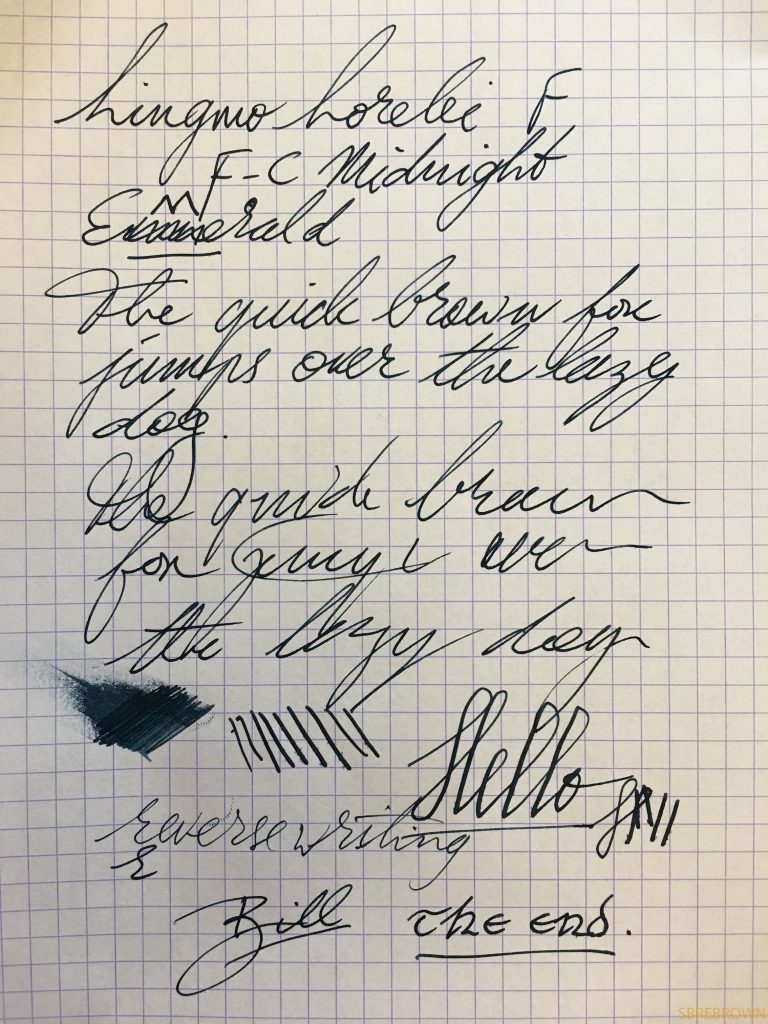 Lingmo Lorelei F
F-C Midnight
M
Emmerald
The quick brown fox
jumps over the lazy
dog.
The quick brown
fox jumps over
the lazy dog
Hello
reverse writing
r
Bill The End.
SBREBROWN